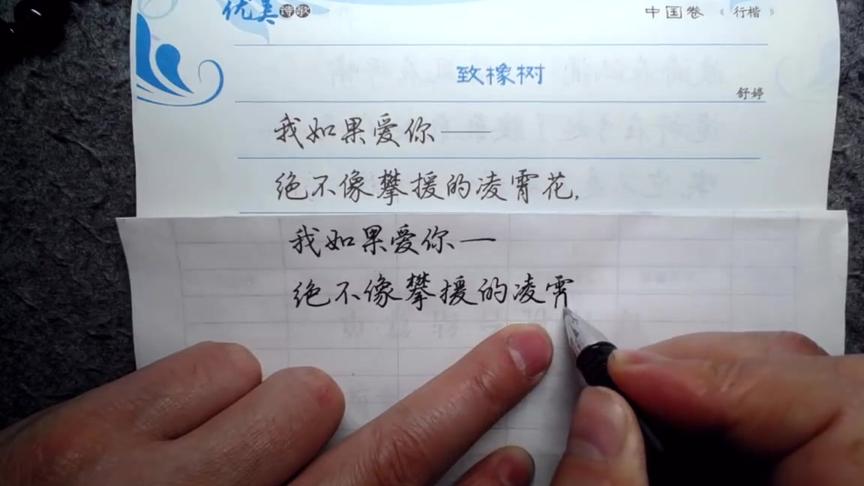 优美诗歌 中国卷《行楷》
致橡树
舒婷
我如果爱你——
绝不像攀援的凌霄花，
我如果爱你—
绝不像攀援的凌霄